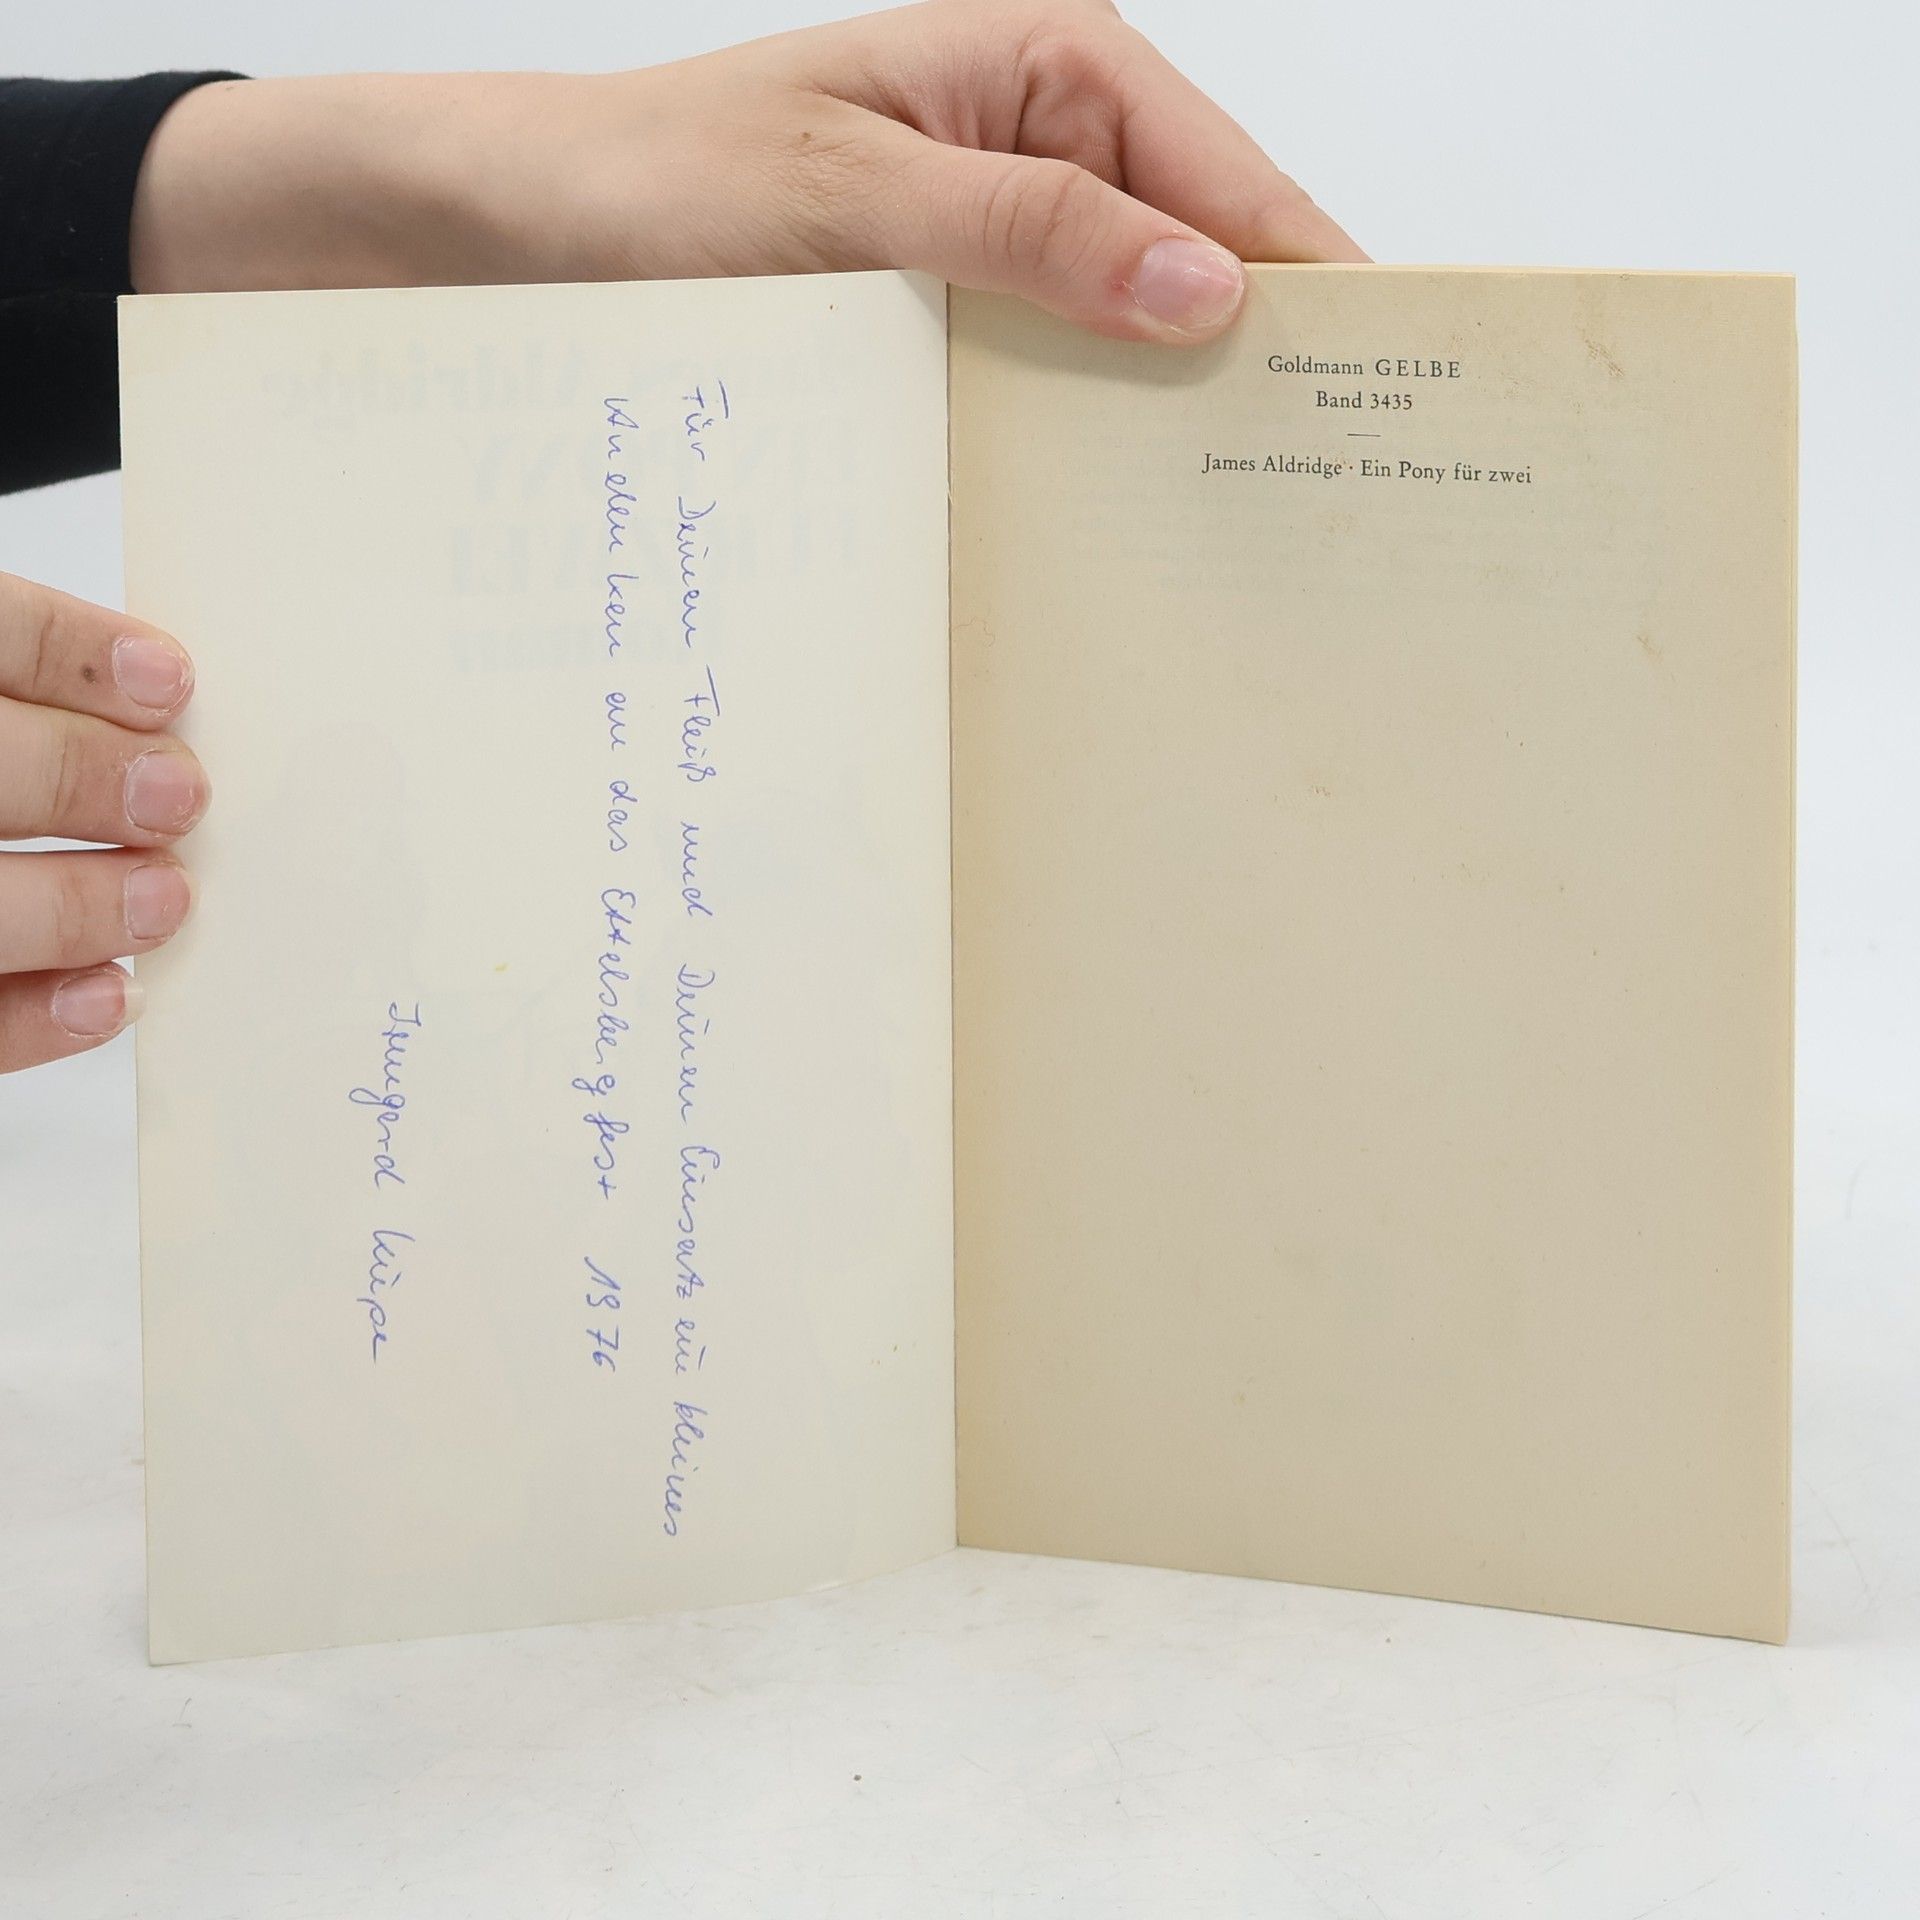 Für Deinen Fleiß und Deinen Einsatz ein kleines
Andenken an das Ettelsbergfest 1976
Irmgard
Goldmann GELBE
Band 3435
James Aldridge · Ein Pony für zwei